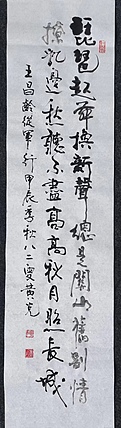 琵琶起舞換新聲總是關山舊別情
撩亂邊愁聽不盡高高秋月照長城
王昌齡從軍行甲辰季秋八二叟黃